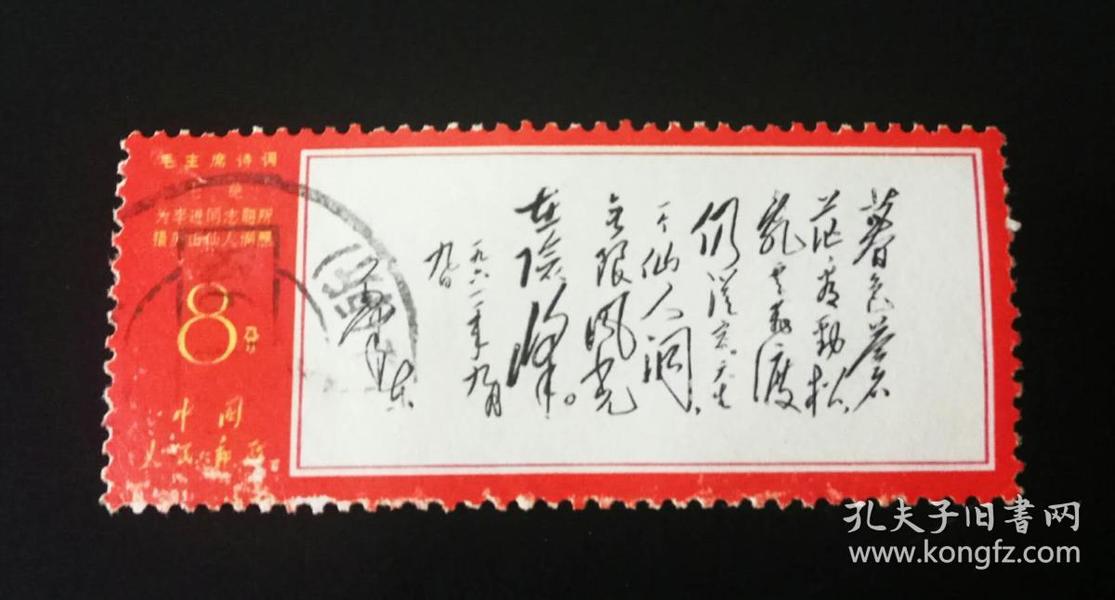 毛主席诗词
七绝
为李进同志题所
摄庐山仙人洞照
8分
中国
人民邮政
暮色苍
茫看劲松，
乱云飞渡
仍从容。天生
一个仙人洞，
无限风光
在险峰。
一九六一年九月
九日
毛泽东
孔夫子旧書网
www.kongfz.com